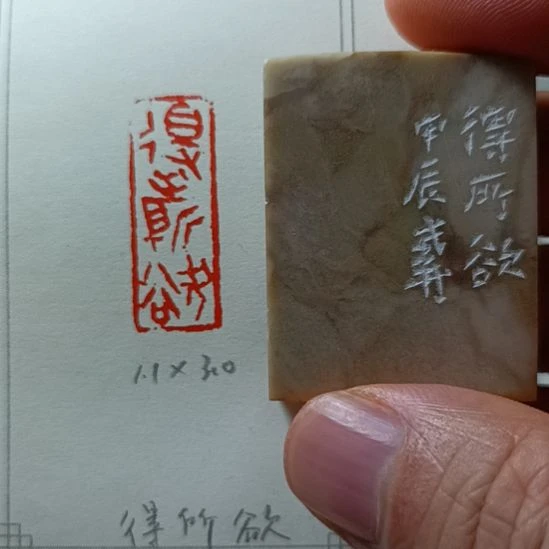 得所欲
1.1×3.0
得所欲
甲辰
得所欲